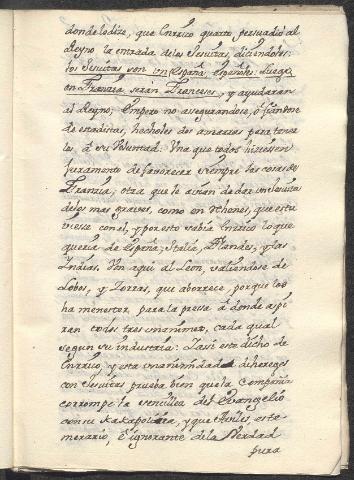 donde lo dize, que Enrrico quarto persuadió al
Reyno la entrada de los Jesuitas, diciendoles:
los Jesuitas son en España, Españoles: Luego
en Franzia seràn Franceses, y ayudaràn
al Reyno; Empero no assegurandose, ò fiandose
de estadistas, hechóles dos amarras para tener
los à su voluntad: Una que todos hiziessen
juramento de favorecer siempre las cosas de
Franzia, otra que le avian de dar un Jesuita
delos mas graves, como en rehenes, que estu
viesse con el, y por esto sabía Enrrico lo que
queria de España, Italia, Flandes, y las
Indias. Ven aqui al Leon, valiendose de
Lobos, y Zorras, que aborrece, porque los
ha menester, para la pressa à donde aspi
ran todos tres unanimes, cada qual
segun su industria: Y assi este dicho de
Enrrico, y esta unanimidad de hereges
con Jesuitas prueba bien que la Compañia
corrompe la sencillez del Evangelio
con su kakapolicia, y que Aviles, es te
merario, è ignorante de la Verdad
pura